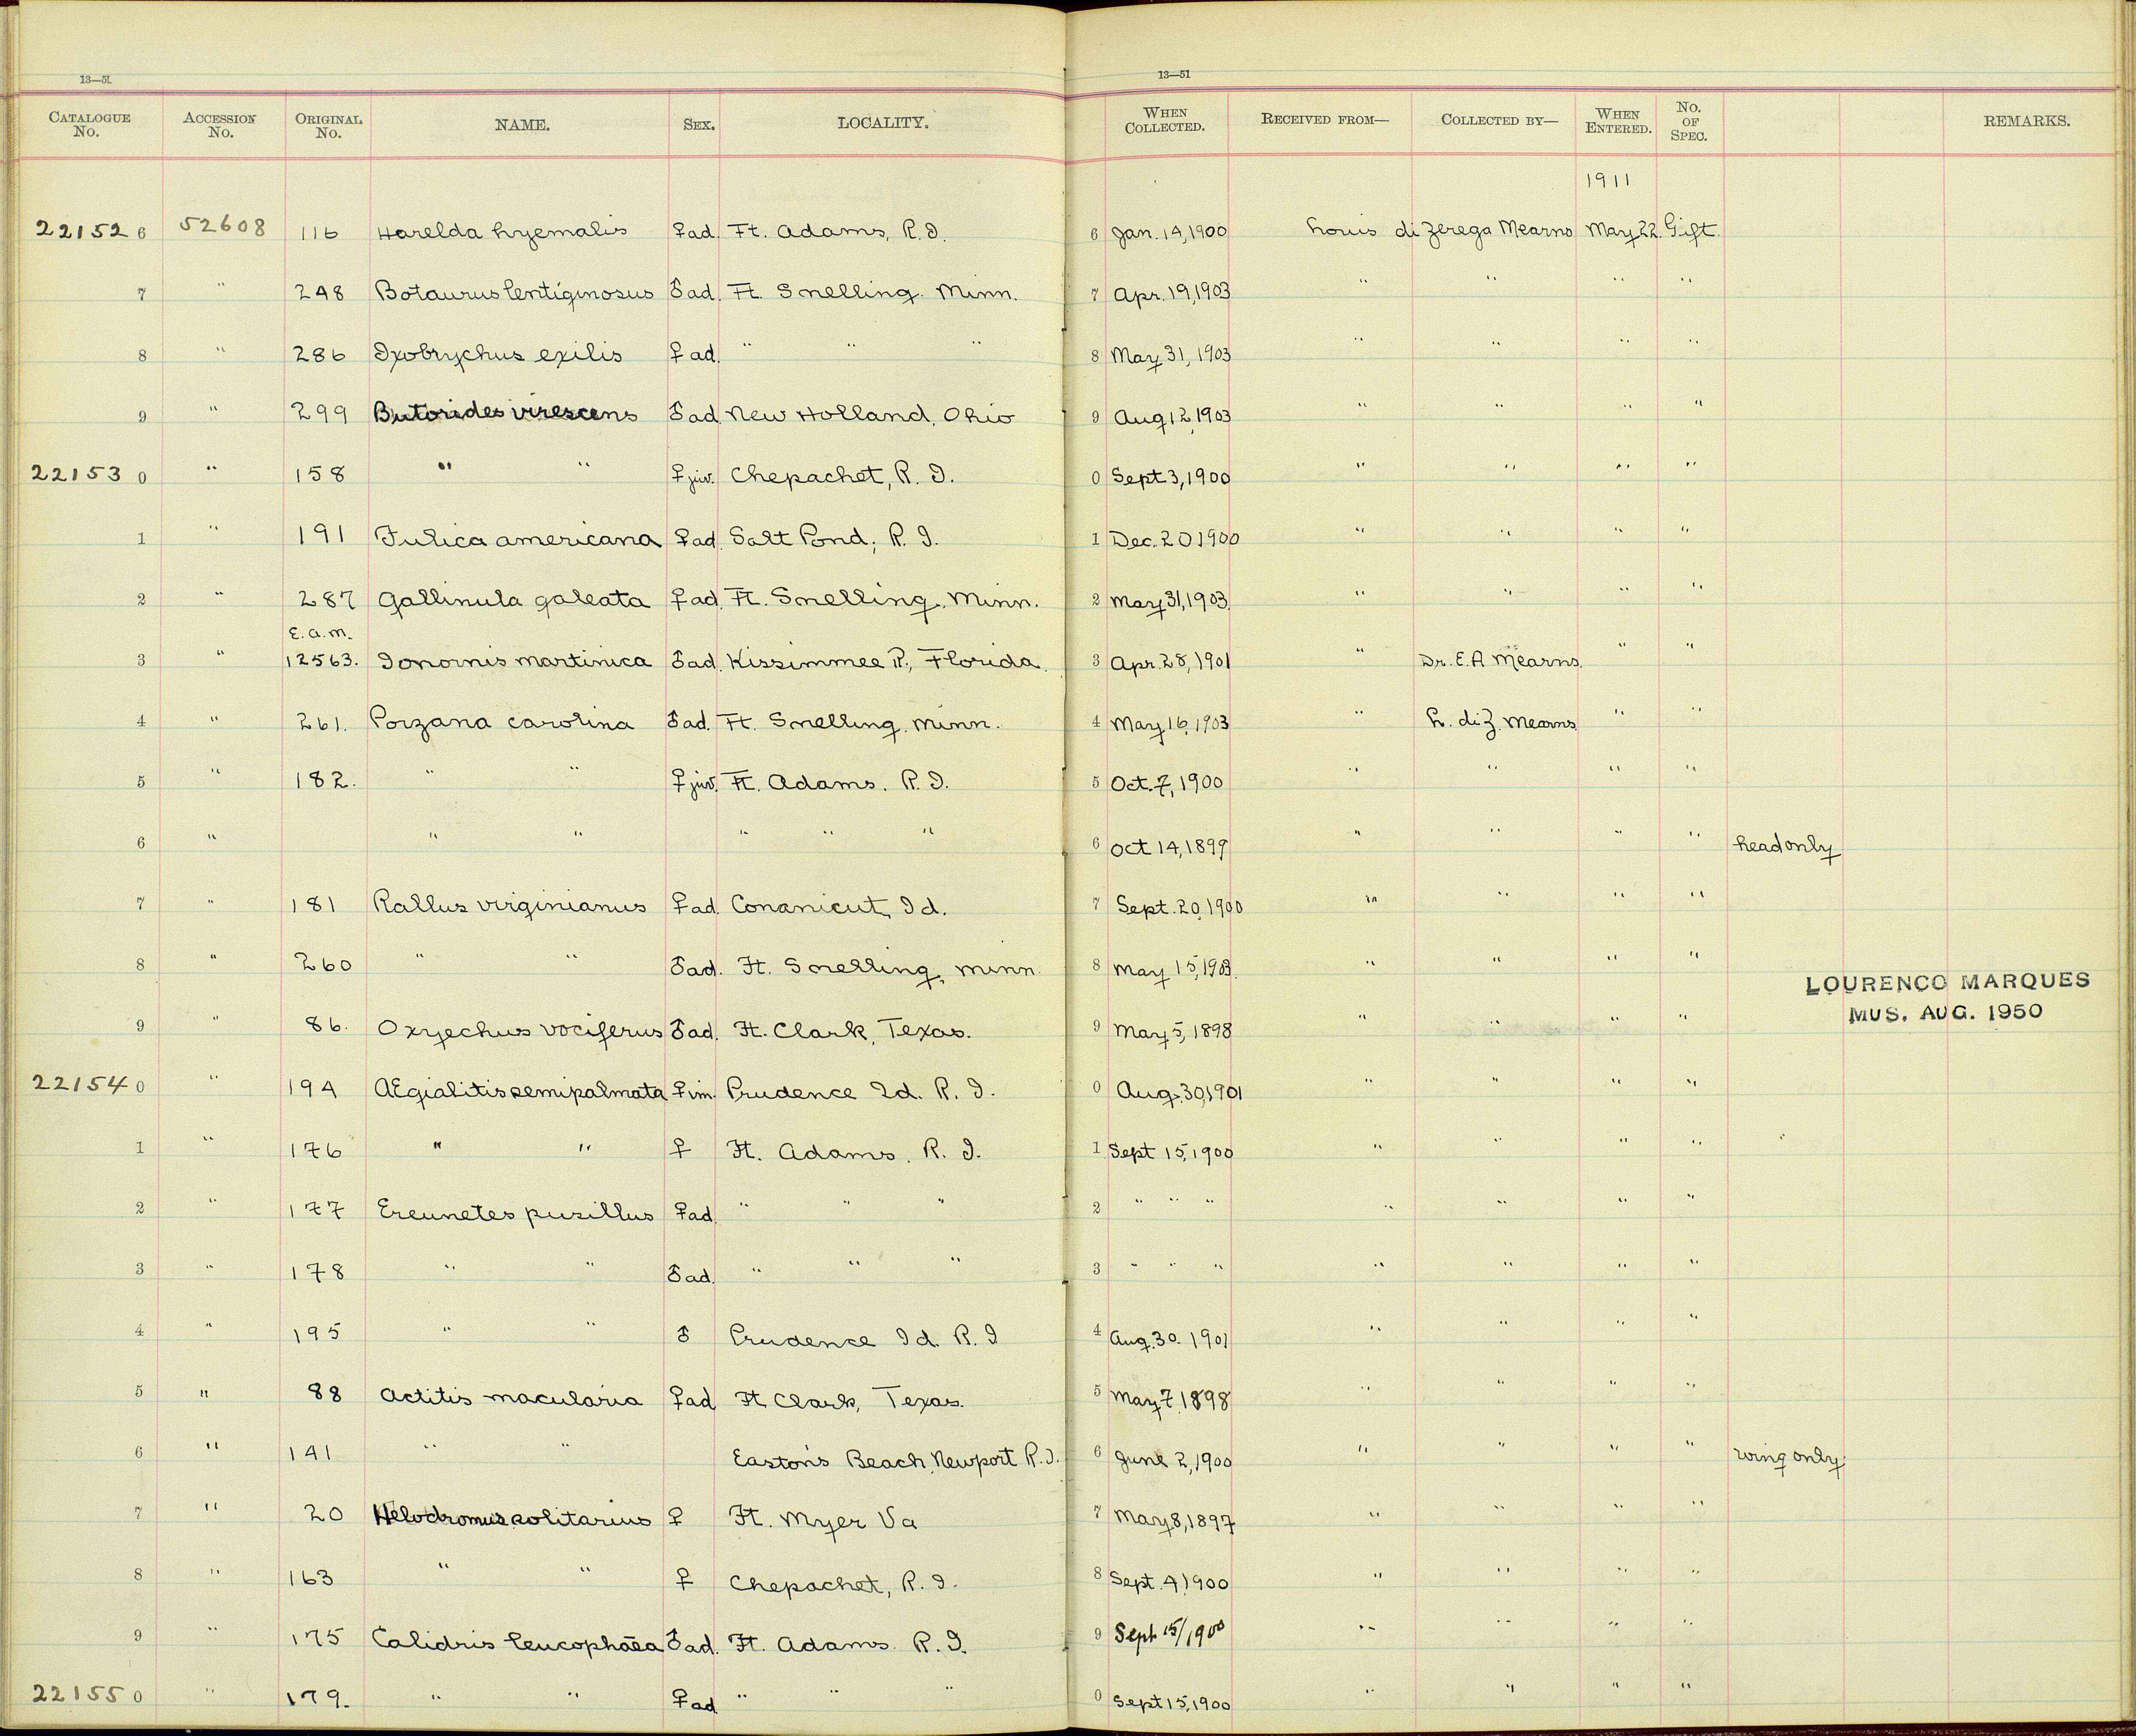 13—51
13—51
CATALOGUE No. ACCESSION No. ORIGINAL No. NAME. SEX. LOCALITY. WHEN COLLECTED. RECEIVED FROM— COLLECTED BY— WHEN ENTERED. No. OF SPEC. REMARKS.
1911
22152 6 52608 116 Harelda hyemalis ♀ad. Ft. Adams, R.I. 6 Jan. 14, 1900 Louis di Zerega Mearns May 22. Gift.
7 " 248 Botaurus lentiginosus ♂ad. Ft. Snelling. Minn. 7 Apr. 19, 1903 " " " "
8 " 286 Ixobrychus exilis ♀ad. " " " 8 May 31, 1903 " " " "
9 " 299 Butorides virescens ♂ad. New Holland, Ohio 9 Aug 12, 1903 " " " "
22153 0 " 158 " " ♀juv. Chepachet, R.I. 0 Sept 3, 1900 " " " "
1 " 191 Fulica americana ♀ad. Salt Pond, R.I. 1 Dec. 20 1900 " " " "
2 " 287 Gallinula galeata ♀ad. Ft. Snelling, Minn. 2 May 31, 1903. " " " "
E.A.M.
3 " 12563. Ionornis martinica ♂ad. Kissimmee R., Florida. 3 Apr. 28, 1901 " Dr. E.A Mearns. " "
4 " 261. Porzana carolina ♂ad. Ft. Snelling, Minn. 4 May 16, 1903 " L. di Z. Mearns " "
5 " 182. " " ♀juv. Ft. Adams. R.I. 5 Oct. 7, 1900 " " " "
6 " " " " " " 6 Oct 14, 1899 " " " " head only
7 " 181 Rallus virginianus ♀ad. Conanicut, Id. 7 Sept. 20, 1900 " " " "
8 " 260 " " ♂ad. Ft. Snelling, Minn. 8 May 15, 1903. " " " "
LOURENCO MARQUES
MUS. AUG. 1950
9 " 86. Oxyechus vociferus ♂ad. Ft. Clark, Texas. 9 May 5, 1898 " " " "
22154 0 " 194 Ægialitis semipalmata ♀im. Prudence Id. R.I. 0 Aug. 30, 1901 " " " "
1 " 176 " " ♀ Ft. Adams. R.I. 1 Sept 15, 1900 " " " "
2 " 177 Ereunetes pusillus ♀ad. " " " 2 " " " " " " "
3 " 178 " " ♂ad. " " " 3 " " " " " " "
4 " 195 " " ♂ Prudence Id. R.I 4 Aug. 30. 1901 " " " "
5 " 88 Actitis macularia ♀ad Ft Clark, Texas. 5 May 7, 1898 " " " "
6 " 141 " " Easton's Beach, Newport R.I. 6 June 2, 1900 " " " " wing only
7 " 20 Helodromus solitarius ♀ Ft. Myer Va 7 May 8, 1897 " " " "
8 " 163 " " ♀ Chepachet, R.I. 8 Sept. 4, 1900 " " " "
9 " 175 Calidris leucophæa ♂ad. Ft. Adams. R.I. 9 Sept 15/1900 " " " "
22155 0 " 179. " " ♀ad " " " 0 Sept 15, 1900 " " " "